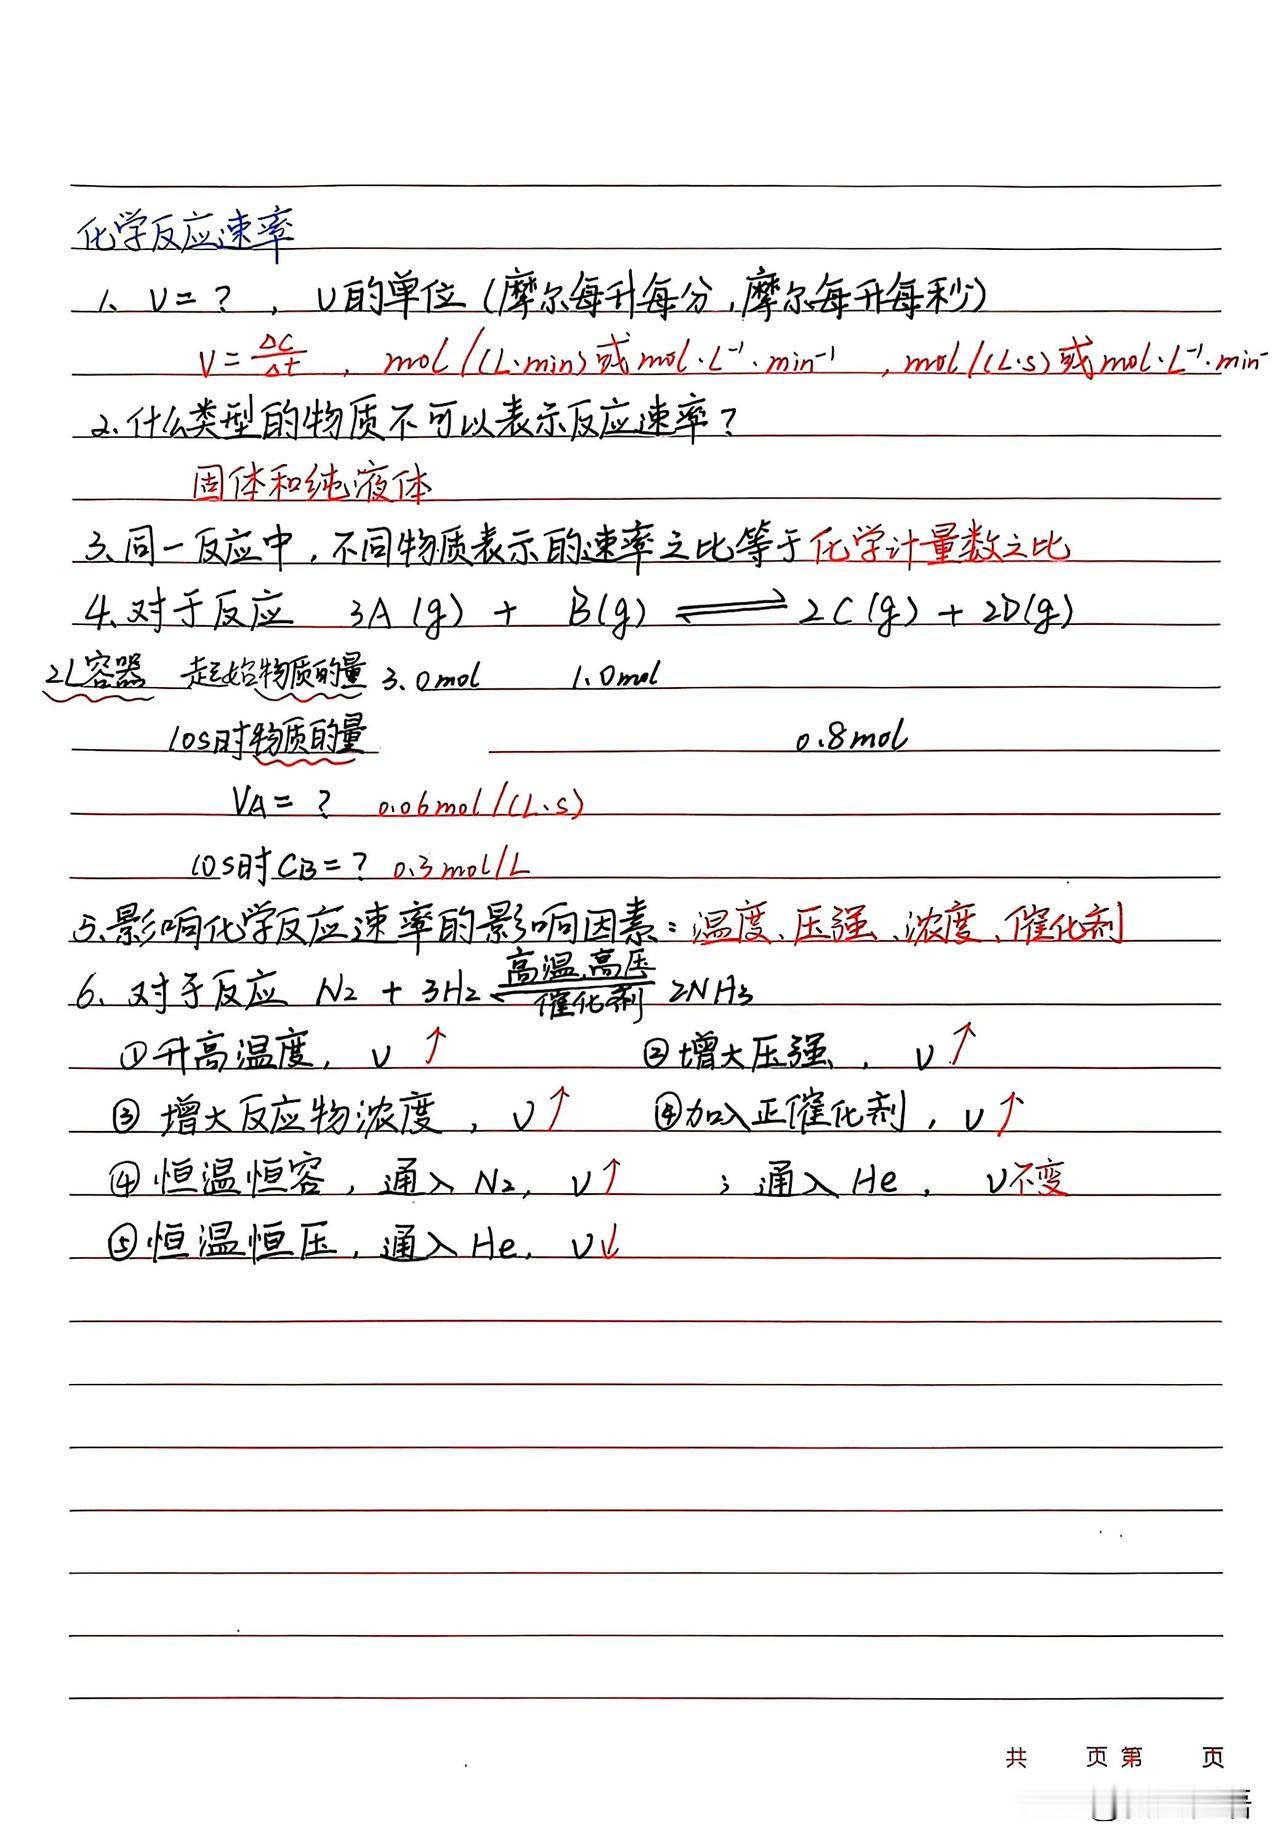 化学反应速率
1、V=?，υ的单位(摩尔每升每分,摩尔每升每秒)
V=ΔC/Δt，mol/(L·min)或mol·L⁻¹·min⁻¹，mol/(L·s)或mol·L⁻¹·min⁻
2.什么类型的物质不可以表示反应速率?
固体和纯液体
3、同一反应中，不同物质表示的速率之比等于化学计量数之比
4、对于反应 3A(g) + B(g) ⇌ 2C(g) + 2D(g)
2L容器 起始物质的量 3.0mol 1.0mol
10s时物质的量 0.8mol
VA=? 0.06mol/(L·s)
10s时CB=? 0.3mol/L
5、影响化学反应速率的影响因素：温度、压强、浓度、催化剂
6、对于反应 N2 + 3H2 ⇌(高温、高压/催化剂) 2NH3
①升高温度，υ↑ ②增大压强，υ↑
③增大反应物浓度，υ↑ ④加入正催化剂，υ↑
④恒温恒容，通入N2，υ↑；通入He，υ不变
⑤恒温恒压，通入He，υ↓
共 页 第 页